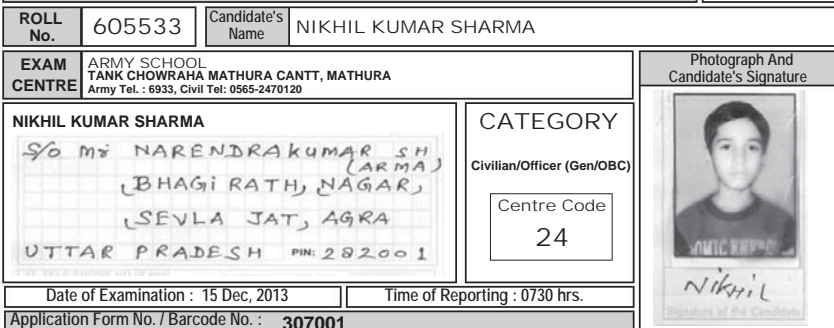 ROLL No. 605533 Candidate's Name NIKHIL KUMAR SHARMA
EXAM CENTRE
ARMY SCHOOL
TANK CHOWRAHA MATHURA CANTT, MATHURA
Army Tel. : 6933, Civil Tel: 0565-2470120
Photograph And
Candidate's Signature
NIKHIL KUMAR SHARMA
S/o Mr NARENDRA KUMAR SH
(ARMA)
BHAGiRATH, NAGAR,
SEVLA JAT, AGRA
UTTAR PRADESH PIN: 282001
CATEGORY
Civilian/Officer (Gen/OBC)
Centre Code
24
NikHiL
Signature of the Candidate
Date of Examination : 15 Dec, 2013
Time of Reporting : 0730 hrs.
Application Form No. / Barcode No. : 307001